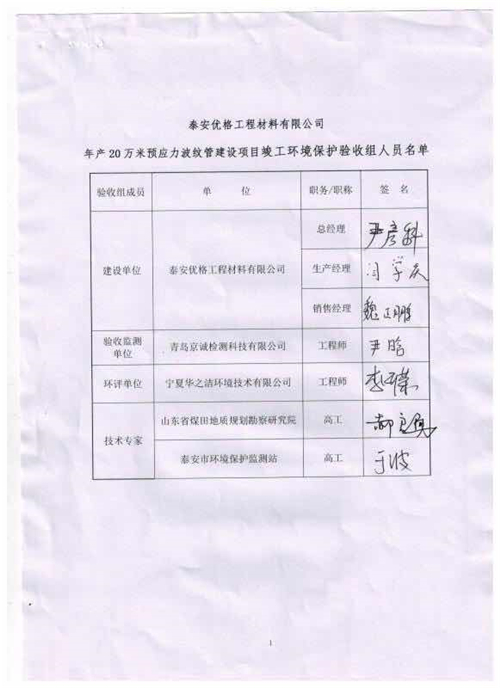 泰安优格工程材料有限公司
年产20万米预应力波纹管建设项目竣工环境保护验收组人员名单
验收组成员 单 位 职务/职称 签 名
建设单位 泰安优格工程材料有限公司 总经理 尹彦科
生产经理 闫学庆
销售经理 魏正鹏
验收监测单位 青岛京诚检测科技有限公司 工程师 尹晗
环评单位 宁夏华之洁环境技术有限公司 工程师
技术专家 山东省煤田地质规划勘察研究院 高工
泰安市环境保护监测站 高工 于波
1